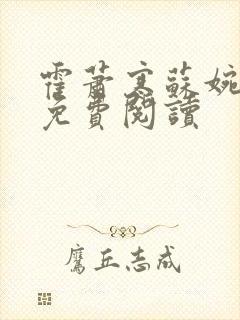 霍蕭寒蘇婉
免費閱讀
鷹丘志成